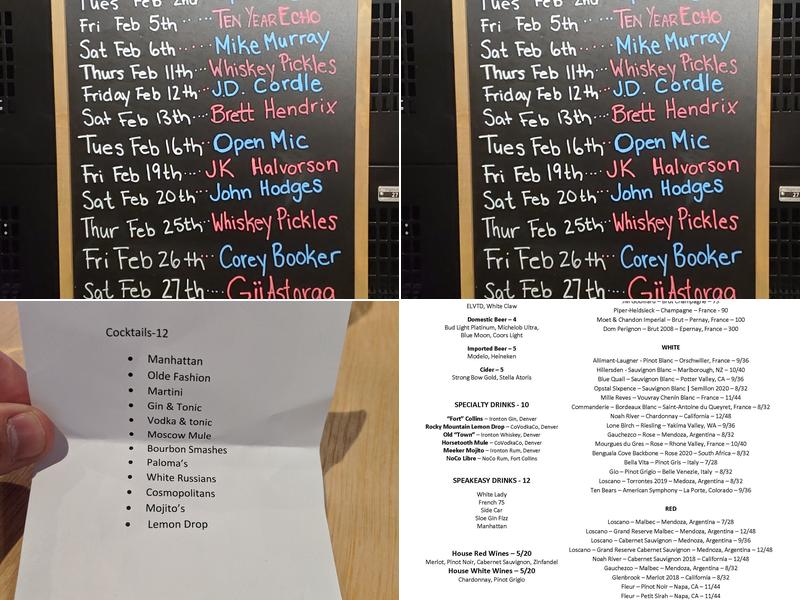 Tues Feb 2nd
Fri Feb 5th···· TEN YEAR ECHO
Sat Feb 6th····· Mike Murray
Thurs Feb 11th··· Whiskey Pickles
Friday Feb 12th·· J.D. Cordle
Sat Feb 13th··· Brett Hendrix
Tues Feb 16th·· Open Mic
Fri Feb 19th··· JK Halvorson
Sat Feb 20th··· John Hodges
Thur Feb 25th·· Whiskey Pickles
Fri Feb 26th·· Corey Booker
Sat Feb 27th··· Gii Astorga
Tues Feb 2nd
Fri Feb 5th···· TEN YEAR ECHO
Sat Feb 6th····· Mike Murray
Thurs Feb 11th··· Whiskey Pickles
Friday Feb 12th·· J.D. Cordle
Sat Feb 13th··· Brett Hendrix
Tues Feb 16th·· Open Mic
Fri Feb 19th··· JK Halvorson
Sat Feb 20th··· John Hodges
Thur Feb 25th·· Whiskey Pickles
Fri Feb 26th·· Corey Booker
Sat Feb 27th··· Gii Astorga
27
Cocktails-12
• Manhattan
• Olde Fashion
• Martini
• Gin & Tonic
• Vodka & tonic
• Moscow Mule
• Bourbon Smashes
• Paloma's
• White Russians
• Cosmopolitans
• Mojito's
• Lemon Drop
ELVTD, White Claw
Domestic Beer – 4
Bud Light Platinum, Michelob Ultra,
Blue Moon, Coors Light
Imported Beer – 5
Modelo, Heineken
Cider – 5
Strong Bow Gold, Stella Atoris
SPECIALTY DRINKS - 10
"Fort" Collins – Ironton Gin, Denver
Rocky Mountain Lemon Drop – CoVodkaCo, Denver
Old "Town" – Ironton Whiskey, Denver
Horsetooth Mule – CoVodkaCo, Denver
Meeker Mojito – Ironton Rum, Denver
NoCo Libre – NoCo Rum, Fort Collins
SPEAKEASY DRINKS - 12
White Lady
French 75
Side Car
Sloe Gin Fizz
Manhattan
House Red Wines – 5/20
Merlot, Pinot Noir, Cabernet Sauvignon, Zinfandel
House White Wines – 5/20
Chardonnay, Pinot Grigio
Piper-Heidsieck – Champagne – France - 90
Moet & Chandon Imperial – Brut – Pernay, France – 100
Dom Perignon – Brut 2008 – Epernay, France – 300
WHITE
Allimant-Laugner - Pinot Blanc – Orschwiller, France – 9/36
Hillersden - Sauvignon Blanc – Marlborough, NZ – 10/40
Blue Quail – Sauvignon Blanc – Potter Valley, CA – 9/36
Opstal Sixpence – Sauvignon Blanc | Semillon 2020 – 8/32
Mille Reves – Vouvray Chenin Blanc – France – 11/44
Commanderie – Bordeaux Blanc – Saint-Antoine du Queyret, France – 8/32
Noah River – Chardonnay – California – 12/48
Lone Birch – Riesling – Yakima Valley, WA – 9/36
Gauchezco – Rose – Mendoza, Argentina – 8/32
Mourgues du Gres – Rose – Rhone Valley, France – 10/40
Benguala Cove Backbone – Rose 2020 – South Africa – 8/32
Bella Vita – Pinot Gris – Italy – 7/28
Gio – Pinot Grigio – Belle Venezie, Italy – 8/32
Loscano – Torrontes 2019 – Medoza, Argentina – 8/32
Ten Bears – American Symphony – La Porte, Colorado – 9/36
RED
Loscano – Malbec – Mendoza, Argentina – 7/28
Loscano – Grand Reserve Malbec – Mendoza, Argentina – 12/48
Loscano – Cabernet Sauvignon – Mednoza, Argentina – 9/36
Loscano – Grand Reserve Cabernet Sauvignon – Mednoza, Argentina – 12/48
Noah River – Cabernet Sauvignon 2018 – California – 12/48
Gauchezco – Malbec – Mendoza, Argentina – 8/32
Glenbrook – Merlot 2018 – California – 8/32
Fleur – Pinot Noir – Napa, CA – 11/44
Fleur – Petit Sirah – Napa, CA – 11/44